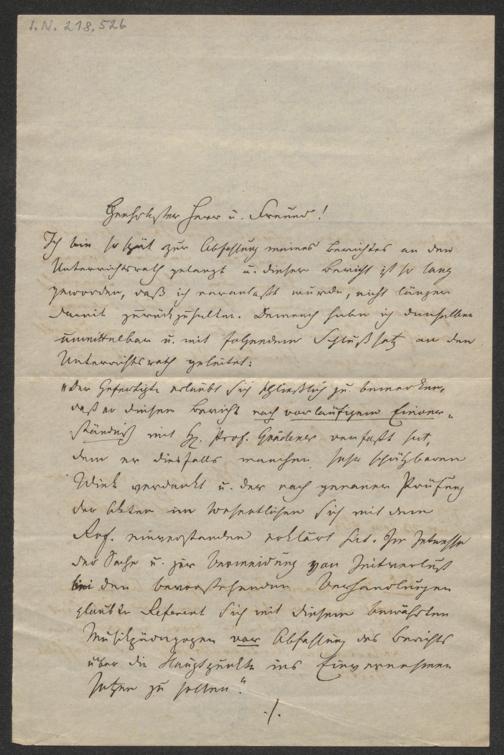 I.N. 218.526
Geehrtester Herr u. Freund!
Ich bin so spät zur Abfassung meines Berichtes an den
Unterrichtsrath gelangt u. dieser Bericht ist so lang
geworden, daß ich veranlaßt wurde, nicht länger
damit zurückzuhalten. Demnach habe ich denselben
unmittelbar u. mit folgendem Schlußsatz an den
Unterrichtsrath geleitet:
"Der Gefertigte erlaubt sich schließlich zu bemerken,
daß er diesen Bericht nach vorläufigem Einver-
ständniß mit H. Prof. Grädener verfaßt hat,
dem er diesfalls manchen sehr schätzbaren
Wink verdankt u. der nach genauer Prüfung
der Akten im Wesentlichen sich mit dem
Ref. einverstanden erklärt hat. Im Interesse
der Sache u. zur Vermeidung von Zeitverlust
bei den bevorstehenden Verhandlungen
glaubte Referent sich mit diesem bewährten
Musikpädagogen vor Abfassung des Berichts
über die Hauptpunkte ins Einvernehmen
setzen zu sollen."
./.